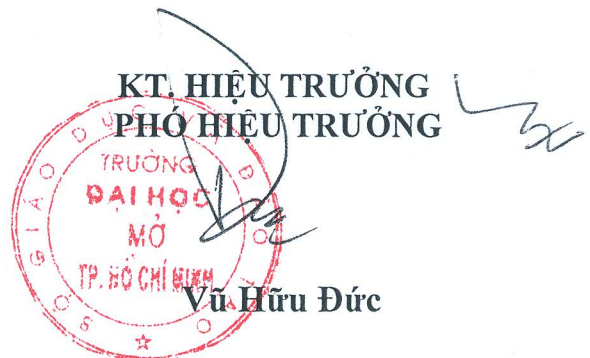 KT. HIỆU TRƯỞNG
PHÓ HIỆU TRƯỞNG
SỞ GIÁO DỤC VÀ ĐÀO TẠO
TRƯỜNG
ĐẠI HỌC
MỞ
TP. HỒ CHÍ MINH
Vũ Hữu Đức